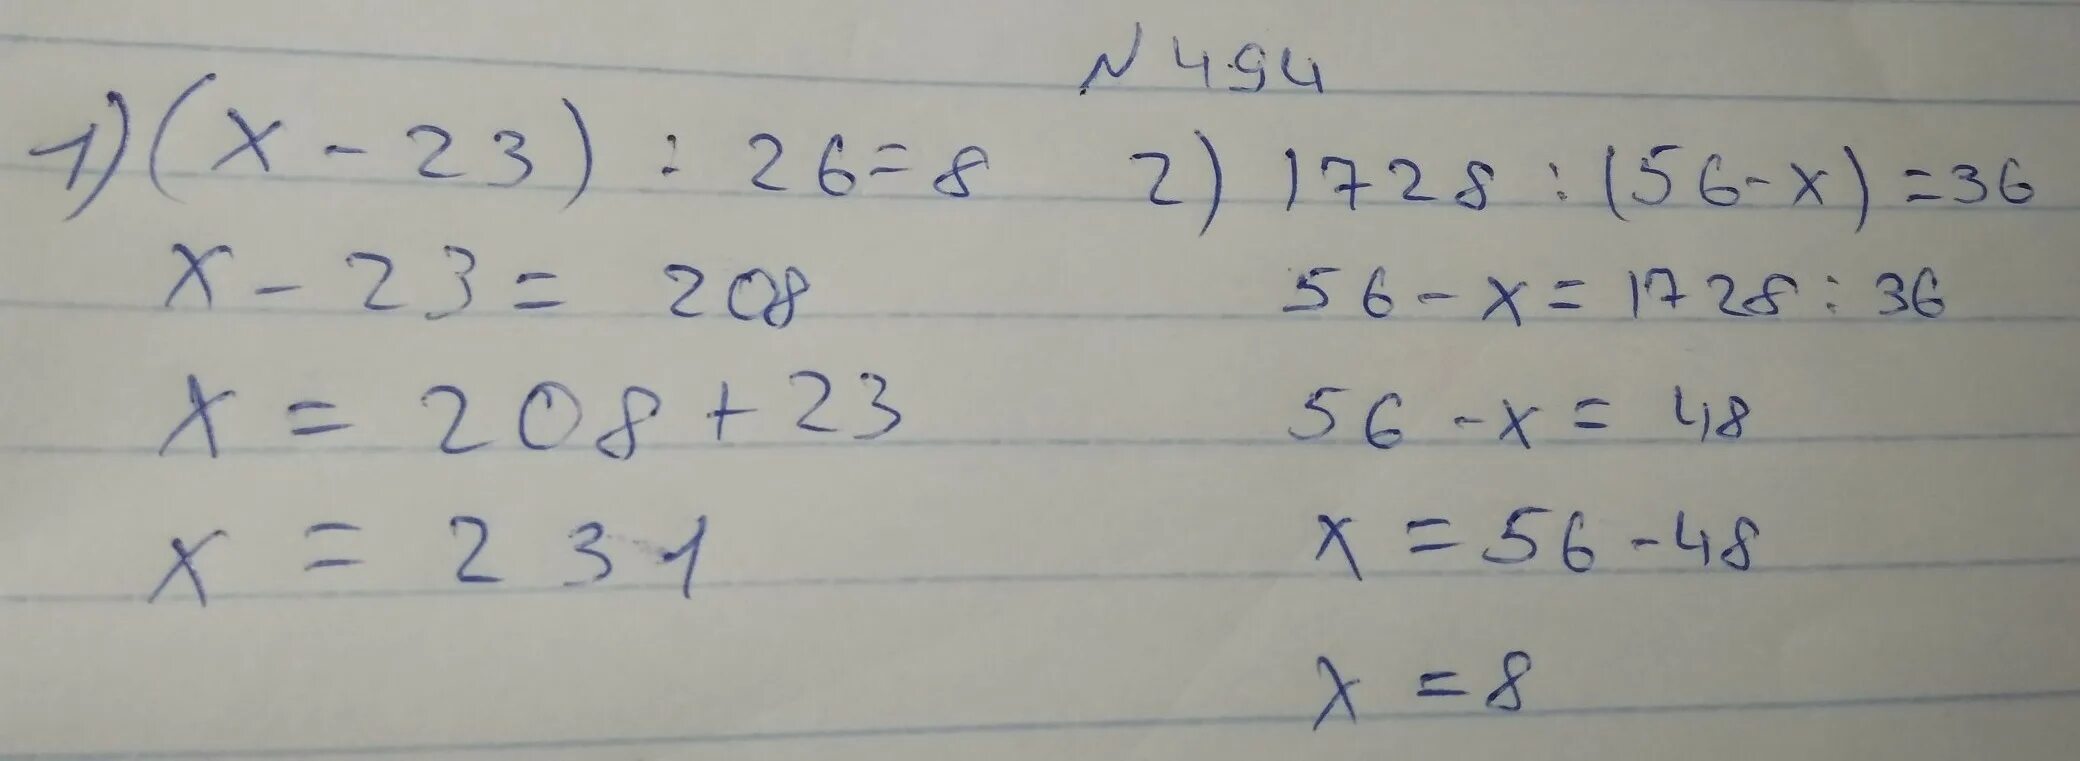 № 494
1) (x - 23) : 26 = 8
x - 23 = 208
x = 208 + 23
x = 231
2) 1728 : (56 - x) = 36
56 - x = 1728 : 36
56 - x = 48
x = 56 - 48
x = 8